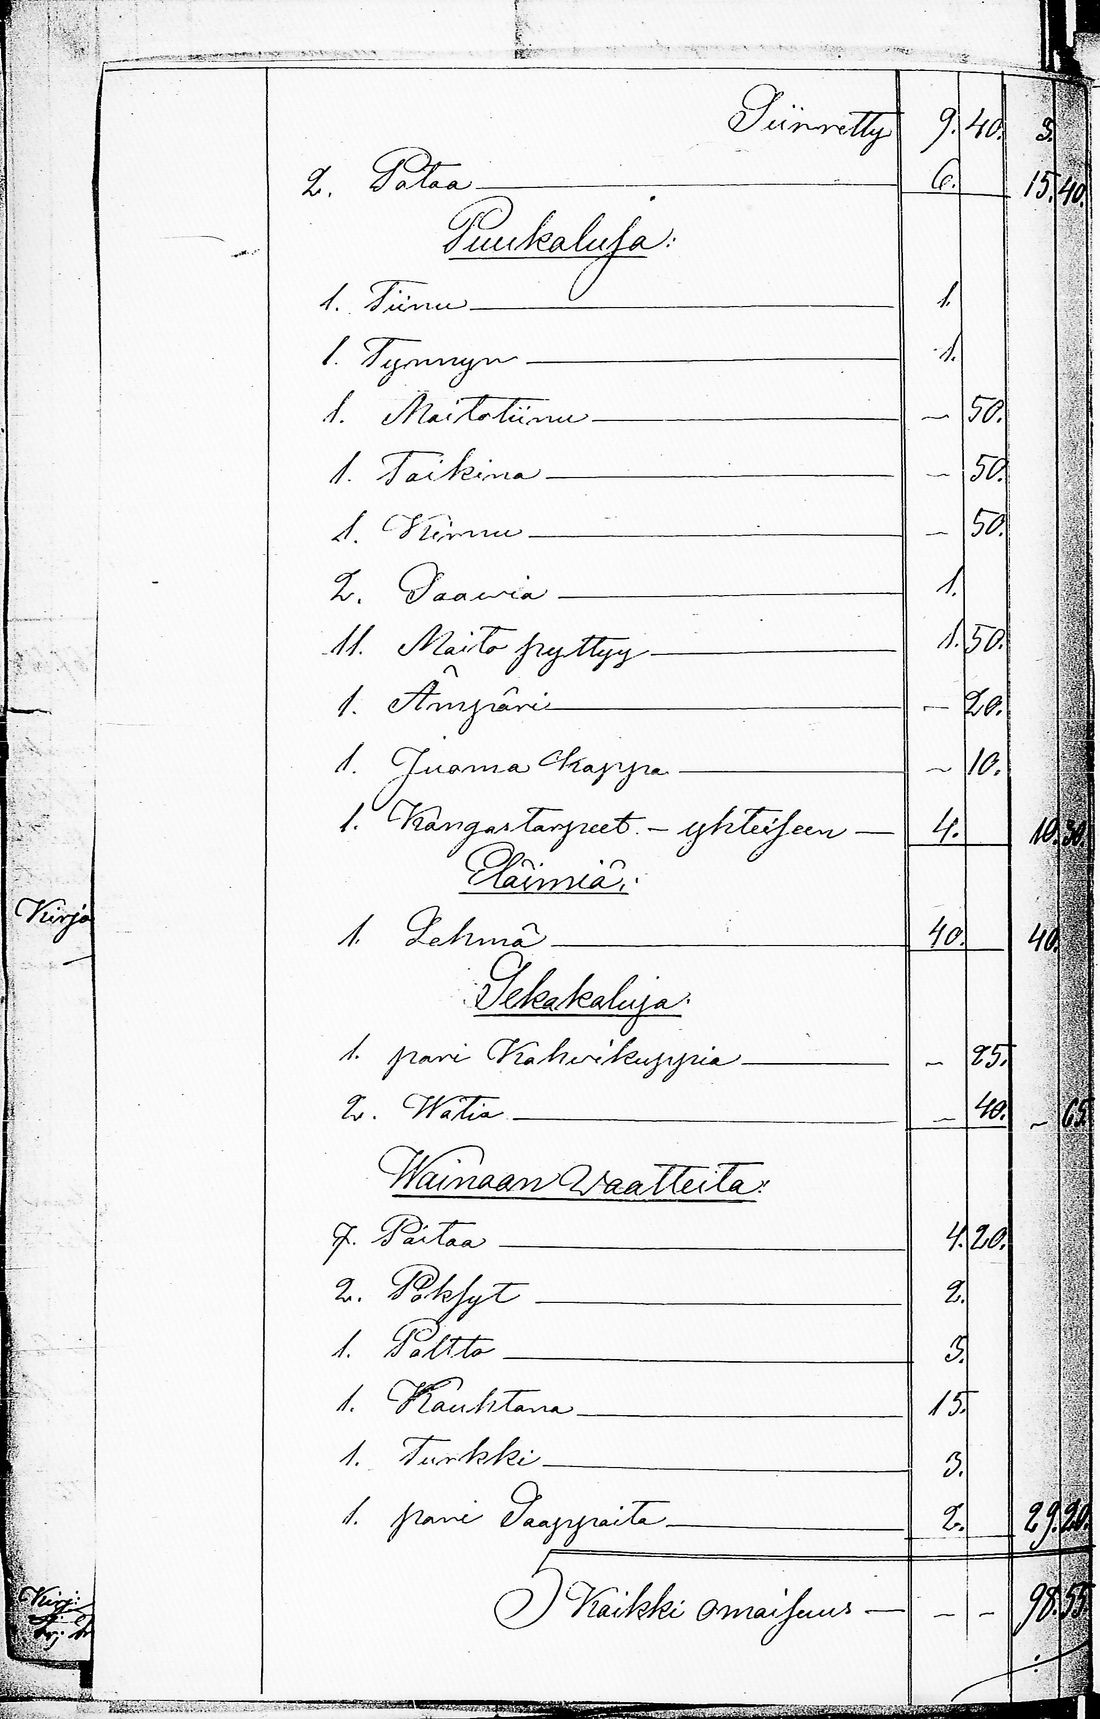 Siirretty 9. 40. 3.
2. Pataa 6. 15. 40.
Puukaluja:
1. Tiinu 1.
1. Tynnyri 1.
1. Maitotiinu – 50.
1. Taikina – 50.
1. Kirnu – 50.
2. Saawia 1.
11. Maito pyttyy 1. 50.
1. Ämpäri – 20.
1. Juoma Kappa – 10.
1. Kangastarpeet – yhteiseen – 4. 10. 30.
Eläimiä:
1. Lehmä 40. 40.
Sekakaluja:
1. pari Kahwikuppia – 25.
2. Watia – 40. – 65
Wainaan Waatteita:
7. Paitaa 4. 20.
2. Pöksyt 2.
1. Paltto 3.
1. Kauhtana 15.
1. Turkki 3.
1. pari Saappaita 2. 29. 20.
Kaikki omaisuus – – – 98. 55
Kirja
Kirj: